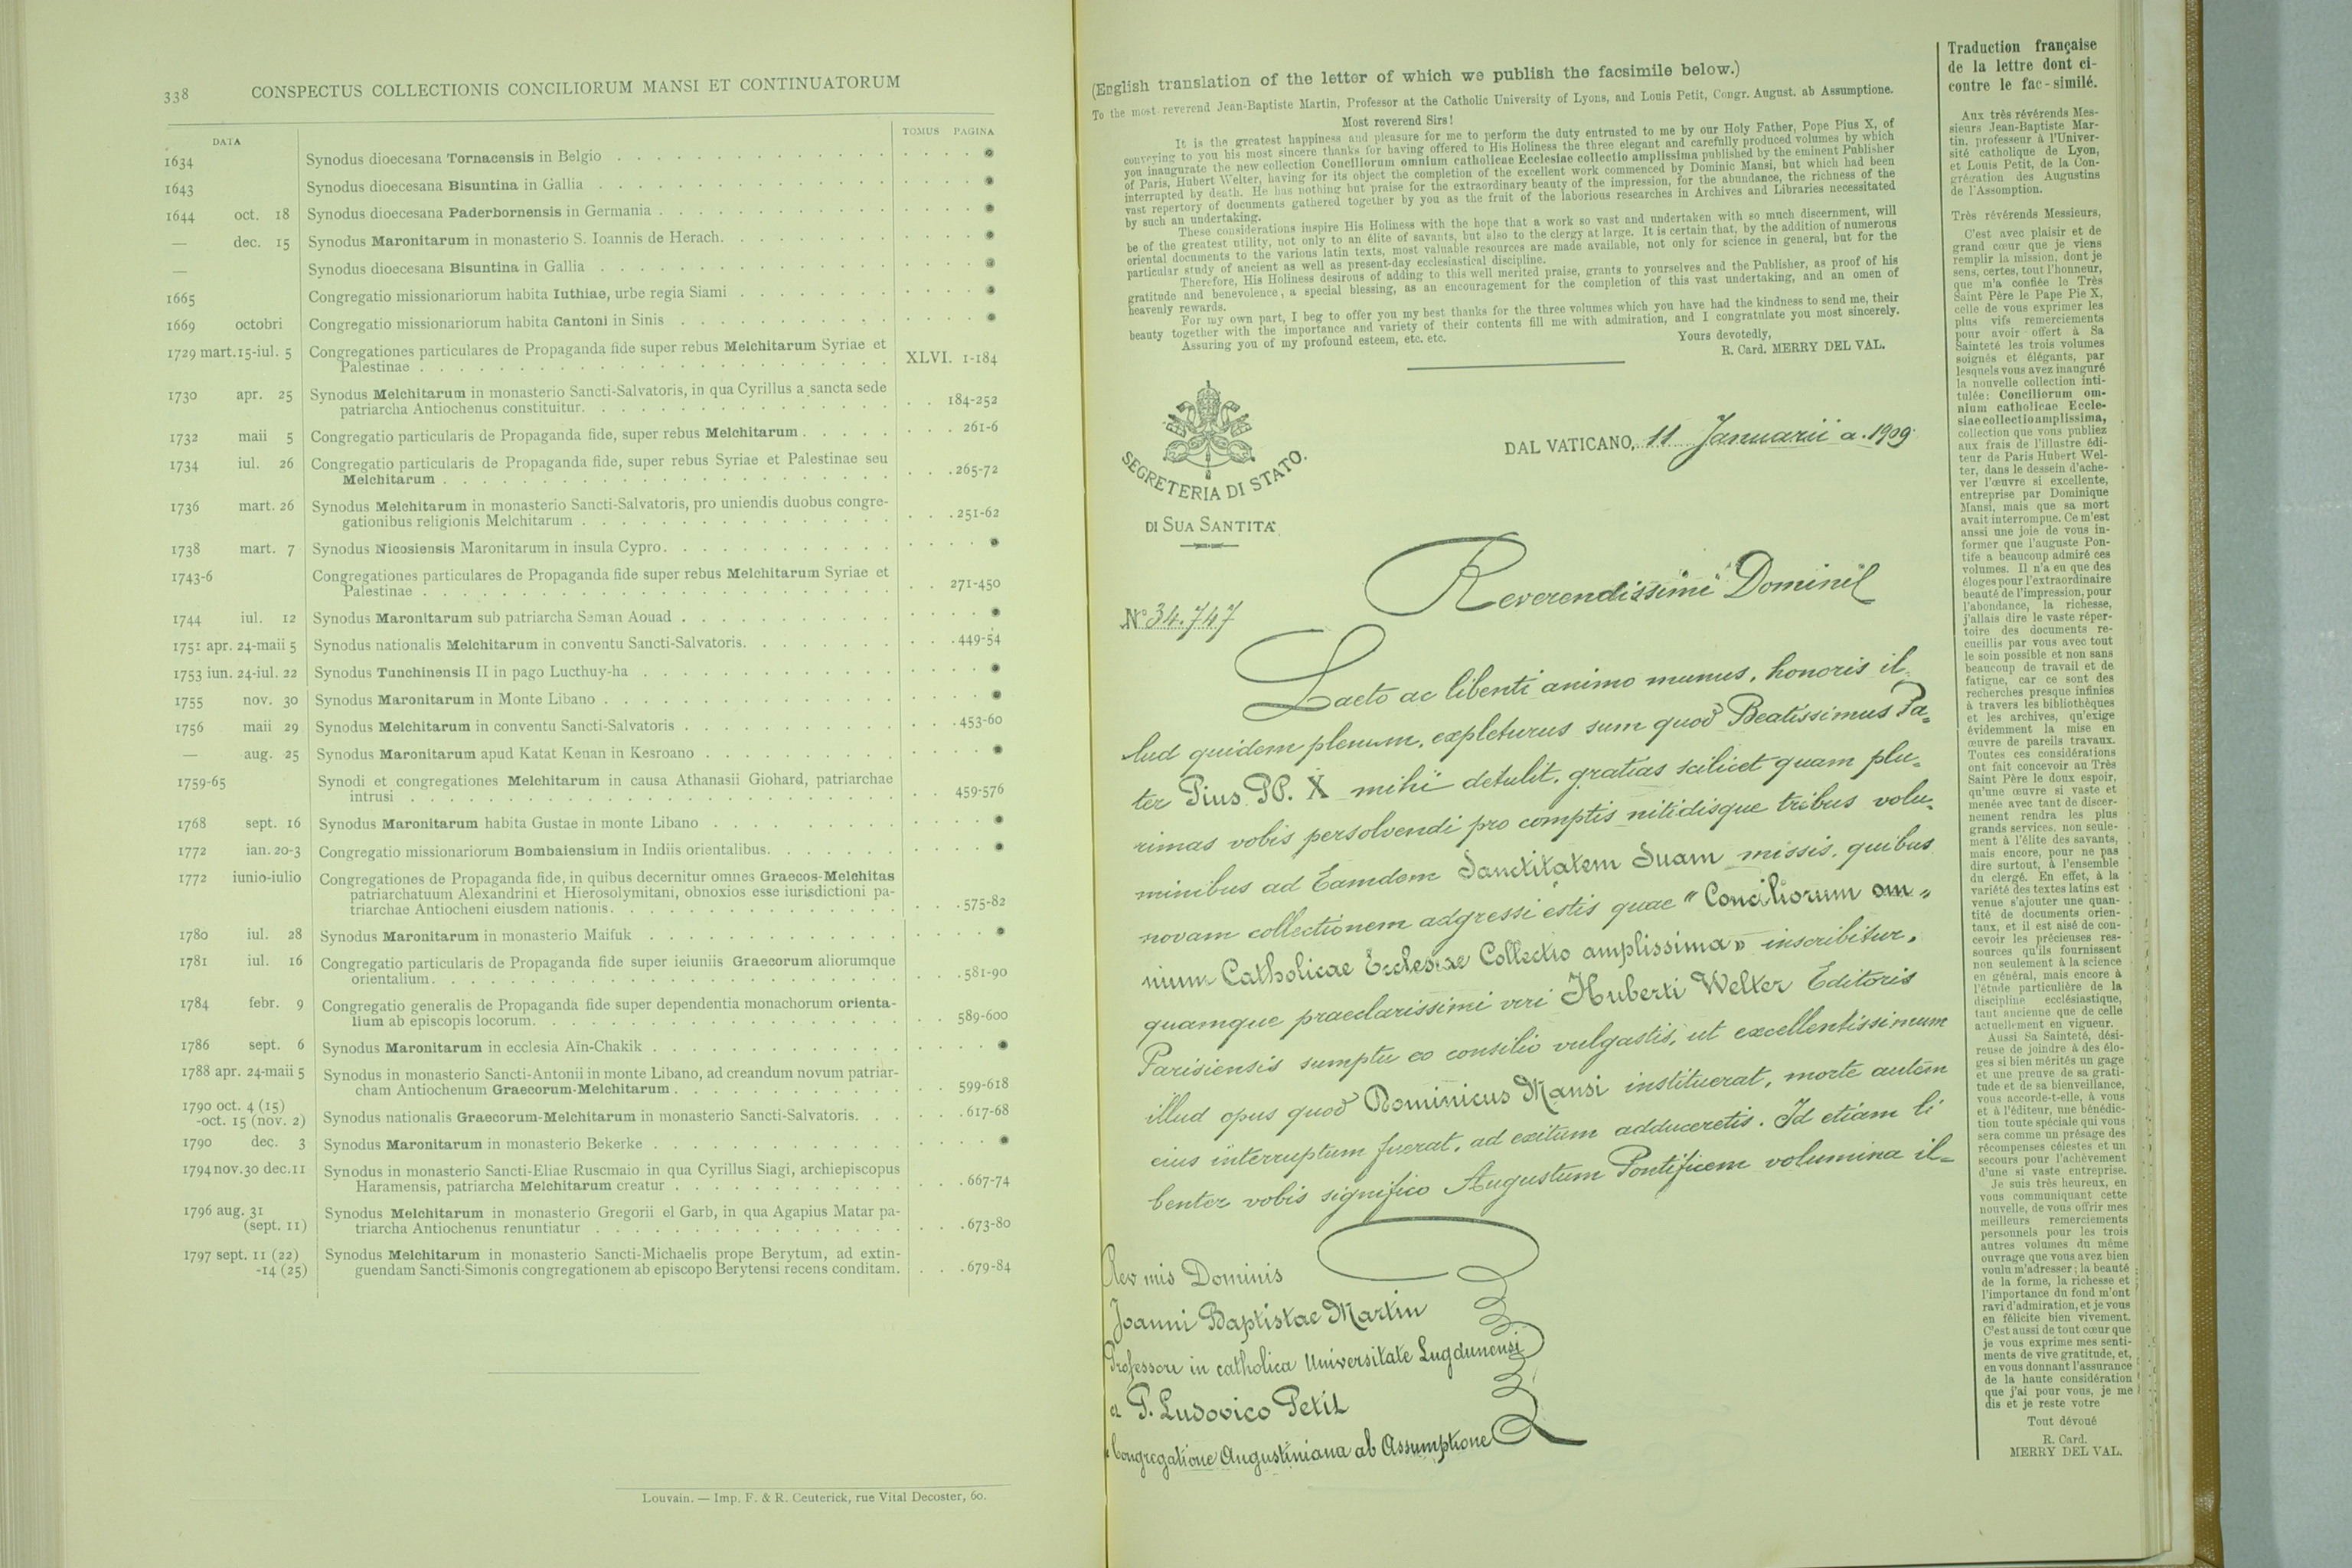 338 CONSPECTUS COLLECTIONIS CONCILIORUM MANSI ET CONTINUATORUM
DATA TOMUS PAGINA
1634 Synodus dioecesana Tornacensis in Belgio
1643 Synodus dioecesana Bisuntina in Gallia
1644 oct. 18 Synodus dioecesana Paderbornensis in Germania
— dec. 15 Synodus Maronitarum in monasterio S. Ioannis de Herach.
— Synodus dioecesana Bisuntina in Gallia
1665 Congregatio missionariorum habita Iuthiae, urbe regia Siami
1669 octobri Congregatio missionariorum habita Cantoni in Sinis
1729 mart.15-iul. 5 Congregationes particulares de Propaganda fide super rebus Melchitarum Syriae et
Palestinae XLVI. 1-184
1730 apr. 25 Synodus Melchitarum in monasterio Sancti-Salvatoris, in qua Cyrillus a sancta sede
patriarcha Antiochenus constituitur. 184-252
1732 maii 5 Congregatio particularis de Propaganda fide, super rebus Melchitarum 261-6
1734 iul. 26 Congregatio particularis de Propaganda fide, super rebus Syriae et Palestinae seu
Melchitarum 265-72
1736 mart. 26 Synodus Melchitarum in monasterio Sancti-Salvatoris, pro uniendis duobus congre-
gationibus religionis Melchitarum 251-62
1738 mart. 7 Synodus Nicosiensis Maronitarum in insula Cypro.
1743-6 Congregationes particulares de Propaganda fide super rebus Melchitarum Syriae et
Palestinae 271-450
1744 iul. 12 Synodus Maronitarum sub patriarcha Seman Aouad
1751 apr. 24-maii 5 Synodus nationalis Melchitarum in conventu Sancti-Salvatoris. 449-54
1753 iun. 24-iul. 22 Synodus Tunchinensis II in pago Lucthuy-ha
1755 nov. 30 Synodus Maronitarum in Monte Libano
1756 maii 29 Synodus Melchitarum in conventu Sancti-Salvatoris 453-60
— aug. 25 Synodus Maronitarum apud Katat Kenan in Kesroano
1759-65 Synodi et congregationes Melchitarum in causa Athanasii Giohard, patriarchae
intrusi 459-576
1768 sept. 16 Synodus Maronitarum habita Gustae in monte Libano
1772 ian. 20-3 Congregatio missionariorum Bombaiensium in Indiis orientalibus.
1772 iunio-iulio Congregationes de Propaganda fide, in quibus decernitur omnes Graecos-Melchitas
patriarchatuum Alexandrini et Hierosolymitani, obnoxios esse iurisdictioni pa-
triarchae Antiocheni eiusdem nationis. 575-82
1780 iul. 28 Synodus Maronitarum in monasterio Maifuk
1781 iul. 16 Congregatio particularis de Propaganda fide super ieiuniis Graecorum aliorumque
orientalium. 581-90
1784 febr. 9 Congregatio generalis de Propaganda fide super dependentia monachorum orienta-
lium ab episcopis locorum. 589-600
1786 sept. 6 Synodus Maronitarum in ecclesia Aïn-Chakik
1788 apr. 24-maii 5 Synodus in monasterio Sancti-Antonii in monte Libano, ad creandum novum patriar-
cham Antiochenum Graecorum-Melchitarum 599-618
1790 oct. 4 (15)
-oct. 15 (nov. 2) Synodus nationalis Graecorum-Melchitarum in monasterio Sancti-Salvatoris. 617-68
1790 dec. 3 Synodus Maronitarum in monasterio Bekerke
1794 nov.30 dec.11 Synodus in monasterio Sancti-Eliae Ruscmaio in qua Cyrillus Siagi, archiepiscopus
Haramensis, patriarcha Melchitarum creatur 667-74
1796 aug. 31 Synodus Melchitarum in monasterio Gregorii el Garb, in qua Agapius Matar pa-
(sept. 11) triarcha Antiochenus renuntiatur 673-80
1797 sept. 11 (22) Synodus Melchitarum in monasterio Sancti-Michaelis prope Berytum, ad extin-
-14 (25) guendam Sancti-Simonis congregationem ab episcopo Berytensi recens conditam. 679-84
Louvain. — Imp. F. & R. Ceuterick, rue Vital Decoster, 60.
(English translation of the letter of which we publish the facsimile below.)
To the most reverend Jean-Baptiste Martin, Professor at the Catholic University of Lyons, and Louis Petit, Congr. August. ab Assumptione.
Most reverend Sirs!
It is the greatest happiness and pleasure for me to perform the duty entrusted to me by our Holy Father, Pope Pius X, of
conveying to you his most sincere thanks for having offered to His Holiness the three elegant and carefully produced volumes by which
you inaugurate the new collection Conciliorum omnium catholicae Ecclesiae collectio amplissima published by the eminent Publisher
of Paris, Hubert Welter, having for its object the completion of the excellent work commenced by Dominic Mansi, but which had been
interrupted by death. He has nothing but praise for the extraordinary beauty of the impression, for the abundance, the richness of the
vast repertory of documents gathered together by you as the fruit of the laborious researches in Archives and Libraries necessitated
by such an undertaking.
These considerations inspire His Holiness with the hope that a work so vast and undertaken with so much discernment, will
be of the greatest utility, not only to an élite of savants, but also to the clergy at large. It is certain that, by the addition of numerous
oriental documents to the various latin texts, most valuable resources are made available, not only for science in general, but for the
particular study of ancient as well as present-day ecclesiastical discipline.
Therefore, His Holiness desirous of adding to this well merited praise, grants to yourselves and the Publisher, as proof of his
gratitude and benevolence, a special blessing, as an encouragement for the completion of this vast undertaking, and an omen of
heavenly rewards.
For my own part, I beg to offer you my best thanks for the three volumes which you have had the kindness to send me, their
beauty together with the importance and variety of their contents fill me with admiration, and I congratulate you most sincerely.
Assuring you of my profound esteem, etc. etc. Yours devotedly,
R. Card. MERRY DEL VAL.
SEGRETERIA DI STATO.
DI SUA SANTITÀ
DAL VATICANO, 11 Januarii a. 1909
Nº 34.747
Reverendissimi Domini
Laeto ac libenti animo munus, honoris il-
lud quidem plenum, expleturus sum quod Beatissimus Pa-
ter Pius PP. X mihi detulit, gratias scilicet quam plu-
rimas vobis persolvendi pro comptis nitidisque tribus volu-
minibus ad Eamdem Sanctitatem Suam missis, quibus
novam collectionem adgressi estis quae "Conciliorum om-
nium Catholicae Ecclesiae Collectio amplissima" inscribitur,
quamque praeclarissimi viri Huberti Welter Editoris
Parisiensis sumptu eo consilio vulgastis, ut excellentissimum
illud opus quod Dominicus Mansi instituerat, morte autem
eius interruptum fuerat, ad exitum adduceretis. Id etiam li
benter vobis significo Augustum Pontificem volumina il-
Rev mis Dominis
Joanni Baptistae Martin
Professori in catholica Universitate Lugdunensi
et P. Ludovico Petit
Congregatione Augustiniana ab Assumptione
Traduction française
de la lettre dont ci-
contre le fac-similé.
Aux très révérends Mes-
sieurs Jean-Baptiste Mar-
tin, professeur à l'Univer-
sité catholique de Lyon,
et Louis Petit, de la Con-
grégation des Augustins
de l'Assomption.
Très révérends Messieurs,
C'est avec plaisir et de
grand cœur que je viens
remplir la mission, dont je
sens, certes, tout l'honneur,
que m'a confiée le Très
Saint Père le Pape Pie X,
celle de vous exprimer les
plus vifs remerciements
pour avoir offert à Sa
Sainteté les trois volumes
soignés et élégants, par
lesquels vous avez inauguré
la nouvelle collection inti-
tulée: Conciliorum om-
nium catholicae Eccle-
siae collectio amplissima,
collection que vous publiez
aux frais de l'illustre édi-
teur de Paris Hubert Wel-
ter, dans le dessein d'ache-
ver l'œuvre si excellente,
entreprise par Dominique
Mansi, mais que sa mort
avait interrompue. Ce m'est
aussi une joie de vous in-
former que l'auguste Pon-
tife a beaucoup admiré ces
volumes. Il n'a eu que des
éloges pour l'extraordinaire
beauté de l'impression, pour
l'abondance, la richesse,
j'allais dire le vaste réper-
toire des documents re-
cueillis par vous avec tout
le soin possible et non sans
beaucoup de travail et de
fatigue, car ce sont des
recherches presque infinies
à travers les bibliothèques
et les archives, qu'exige
évidemment la mise en
œuvre de pareils travaux.
Toutes ces considérations
ont fait concevoir au Très
Saint Père le doux espoir,
qu'une œuvre si vaste et
menée avec tant de discer-
nement rendra les plus
grands services, non seule-
ment à l'élite des savants,
mais encore, pour ne pas
dire surtout, à l'ensemble
du clergé. En effet, à la
variété des textes latins est
venue s'ajouter une quan-
tité de documents orien-
taux, et il est aisé de con-
cevoir les précieuses res-
sources qu'ils fournissent
non seulement à la science
en général, mais encore à
l'étude particulière de la
discipline ecclésiastique,
tant ancienne que de celle
actuellement en vigueur.
Aussi Sa Sainteté, dési-
reuse de joindre à des élo-
ges si bien mérités un gage
et une preuve de sa grati-
tude et de sa bienveillance,
vous accorde-t-elle, à vous
et à l'éditeur, une bénédic-
tion toute spéciale qui vous
sera comme un présage des
récompenses célestes et un
secours pour l'achèvement
d'une si vaste entreprise.
Je suis très heureux, en
vous communiquant cette
nouvelle, de vous offrir mes
meilleurs remerciements
personnels pour les trois
autres volumes du même
ouvrage que vous avez bien
voulu m'adresser; la beauté
de la forme, la richesse et
l'importance du fond m'ont
ravi d'admiration, et je vous
en félicite bien vivement.
C'est aussi de tout cœur que
je vous exprime mes senti-
ments de vive gratitude, et,
en vous donnant l'assurance
de la haute considération
que j'ai pour vous, je me
dis et je reste votre
Tout dévoué
R. Card.
MERRY DEL VAL.